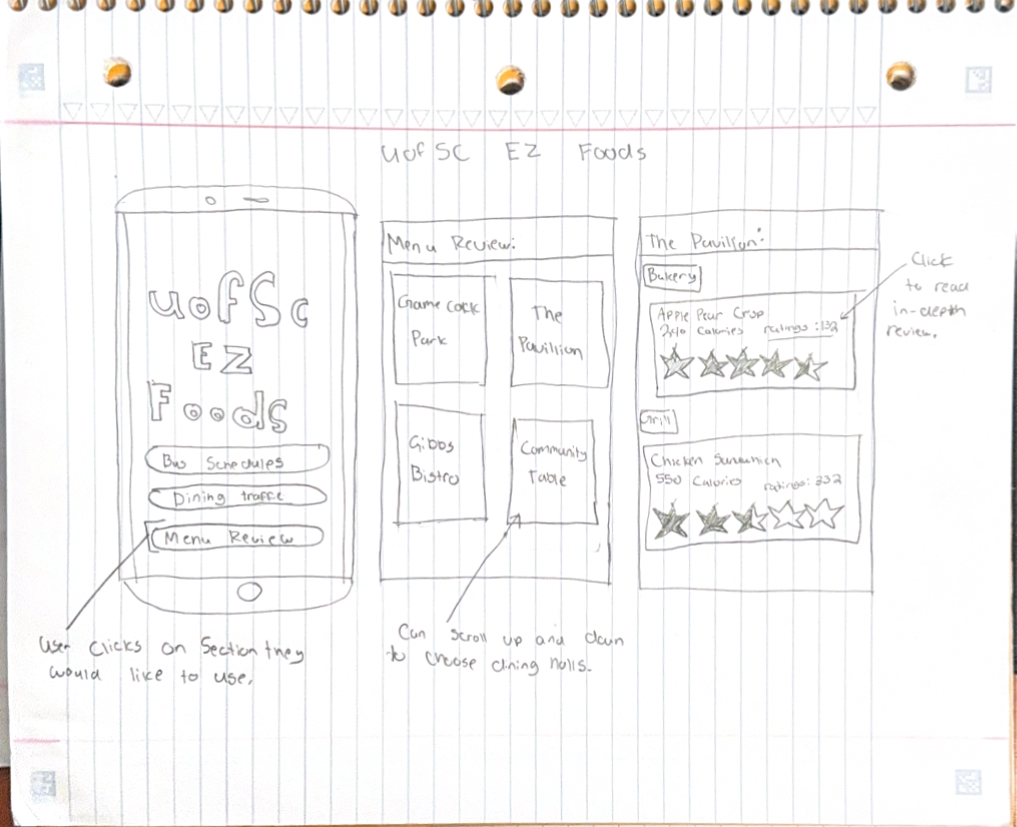 uofSC EZ Foods
uofSc
EZ
Foods
Bus Schedules
Dining traffic
Menu Review
User clicks on Section they
would like to use.
Menu Review:
Game cock
Park
The
Pavillion
Gibbs
Bistro
Community
Table
Can scroll up and down
to choose dining halls.
The Pavilion:
Bakery
Apple Pear Crisp
240 Calories ratings: 132
Grill
Chicken Sandwhich
550 Calories ratings: 232
Click
to read
in-depth
review.